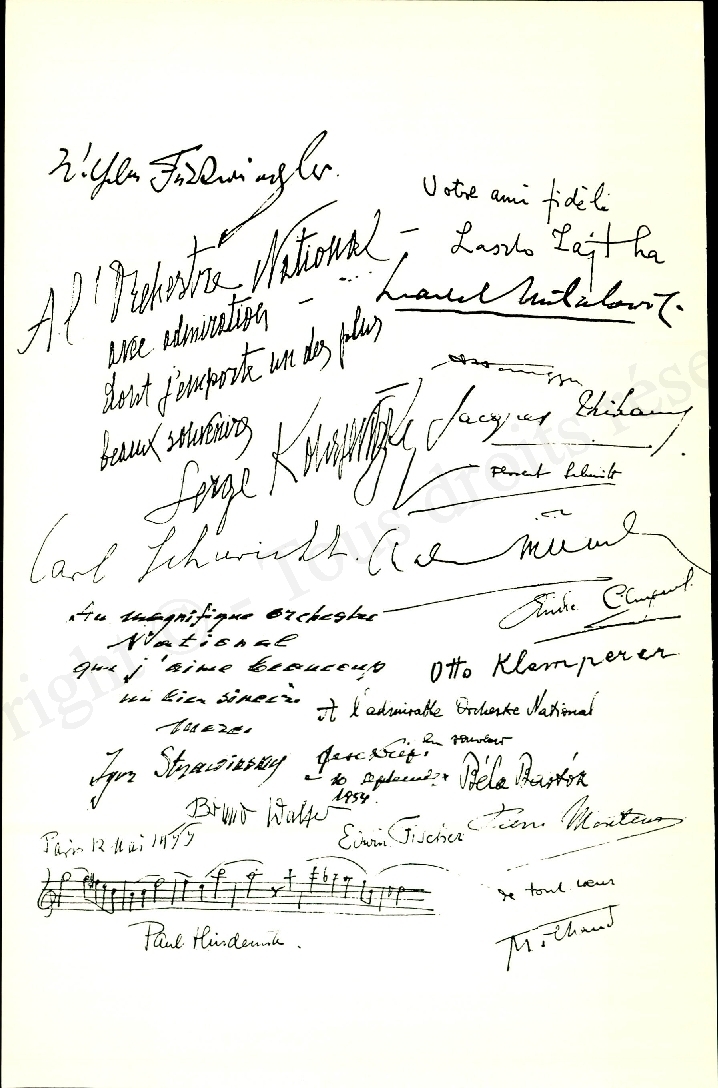 Wilhelm Furtwängler
Votre ami fidèle
Laszlo Lajtha
A l'Orchestre National –
avec admiration –
dont j'emporte un des plus
beaux souvenirs
Serge Koussevitzky
Jacques Thibaud
Florent Schmitt
Carl Schuricht
Charles Münch
André Cluytens
Au magnifique orchestre
National
que j'aime beaucoup
un bien sincère
merci
Igor Strawinsky
10 septembre
1954
Otto Klemperer
A l'admirable Orchestre National
en souvenir
Béla Bartók
Bruno Walter
Edwin Fischer
Pierre Monteux
Paris 12 Mai
Paul Hindemith.
de tout cœur
Milhaud
right © - Tous droits rése